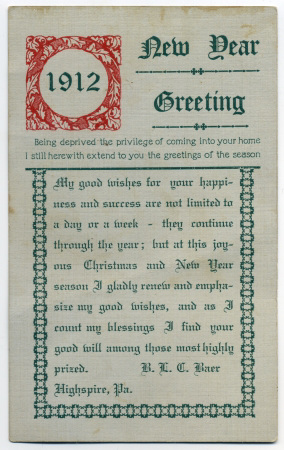 1912
New Year
Greeting
Being deprived the privilege of coming into your home
I still herewith extend to you the greetings of the season
My good wishes for your happi-
ness and success are not limited to
a day or a week - they continue
through the year; but at this joy-
ous Christmas and New Year
season I gladly renew and empha-
size my good wishes, and as I
count my blessings I find your
good will among those most highly
prized. B. L. C. Baer
Highspire, Pa.